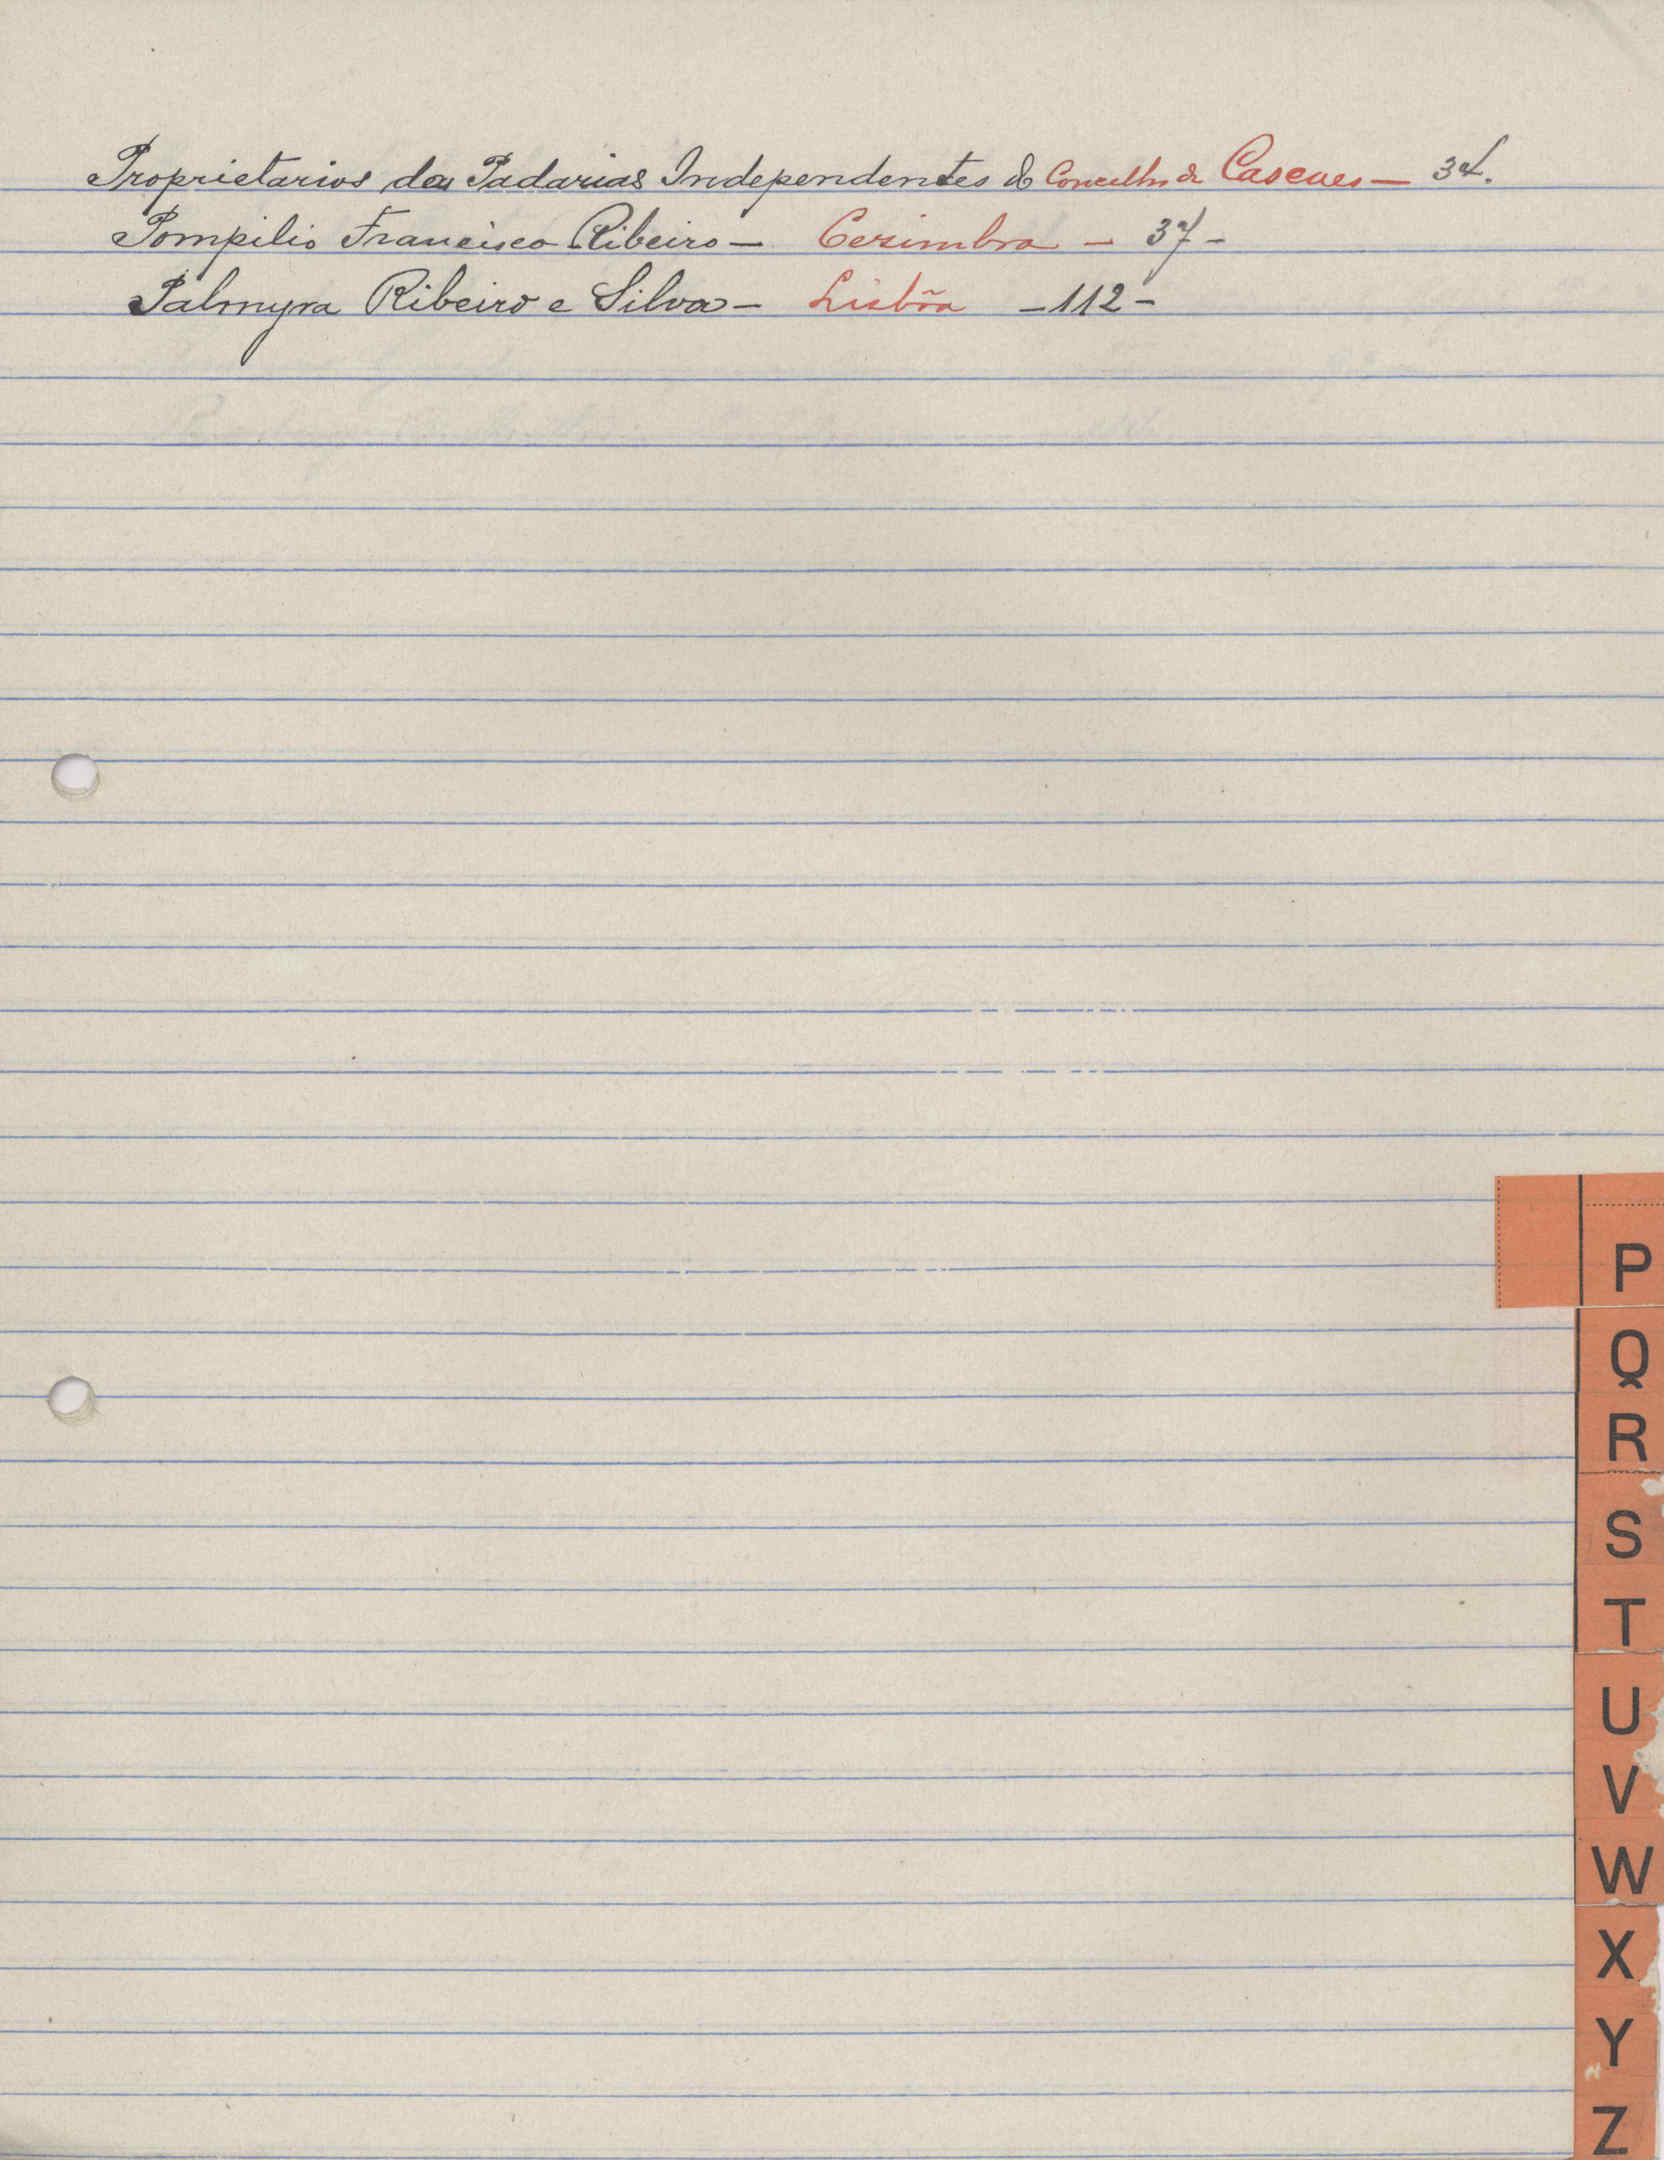 Proprietarios das Padarias Independentes do Concelho de Cascaes —
Pompilio Francisco Ribeiro — Cesimbra — 37 —
Palmyra Ribeiro e Silva — Lisbõa — 112 —
P
Q
R
S
T
U
V
W
X
Y
Z